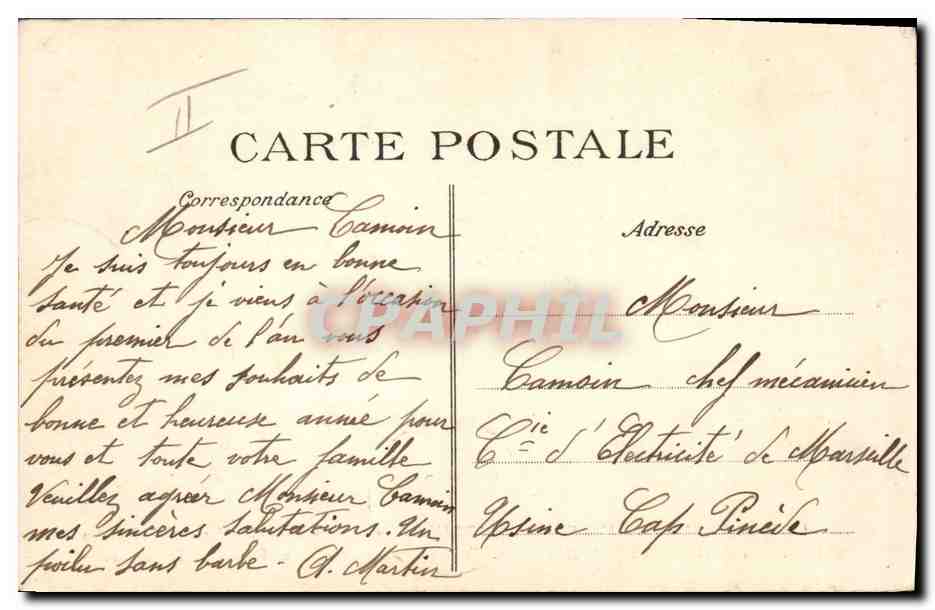 II
CARTE POSTALE
Correspondance
Monsieur Camoin
Je suis toujours en bonne
santé et je viens à l'occasion
du premier de l'an vous
présentez mes souhaits de
bonne et heureuse année pour
vous et toute votre famille
Veuillez agréer Monsieur Camoin
mes sincères salutations. Un
poilu sans barbe - A. Martin
Adresse
Monsieur
Camoin chef mécanicien
Cie d'Electricité de Marseille
Usine Cap Pinède
CPAPHIL